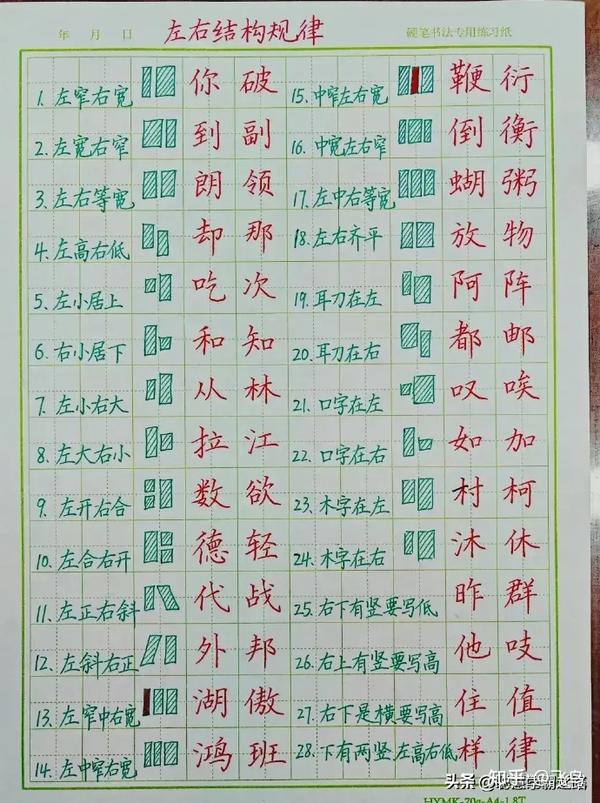 年 月 日
左右结构规律
硬笔书法专用练习纸
1. 左窄右宽 你 破
2. 左宽右窄 到 副
3. 左右等宽 朗 领
4. 左高右低 却 那
5. 左小居上 吃 次
6. 右小居下 和 知
7. 左小右大 从 林
8. 左大右小 拉 江
9. 左开右合 数 欲
10. 左合右开 德 轻
11. 左正右斜 代 战
12. 左斜右正 外 邦
13. 左窄中右宽 湖 傲
14. 左中窄右宽 鸿 班
15. 中窄左右宽 鞭 衍
16. 中宽左右窄 倒 衡
17. 左中右等宽 蝴 粥
18. 左右齐平 放 物
19. 耳刀在左 阿 阵
20. 耳刀在右 都 邮
21. 口字在左 叹 唉
22. 口字在右 如 加
23. 木字在左 村 柯
24. 木字在右 沐 休
25. 右下有竖要写低 昨 群
26. 右上有竖要写高 他 吱
27. 右下是横要写高 住 值
28. 下有两竖左高右低 样 律
HYMK-70g-A4-1.8T